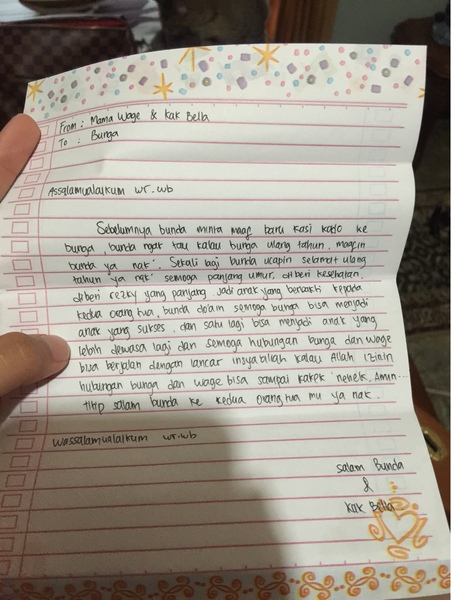 From : Mama Wage & Kak Bella
To : Bunga
Assalamualaikum wr.wb
Sebelumnya bunda minta maaf baru kasi kado ke
bunga, bunda ngak tau kalau bunga ulang tahun. maafin
bunda ya nak". Sekali lagi bunda ucapin selamat ulang
tahun ya nak" semoga panjang umur, diberi kesehatan,
diberi rezky yang panjang, jadi anak yang berbakti kepada
kedua orang tua, bunda doain semoga bunga bisa menjadi
anak yang sukses, dan satu lagi bisa menjadi anak yang
lebih dewasa lagi dan semoga hubungan bunga dan wage
bisa berjalan dengan lancar insyaallah kalau Allah izinin
hubungan bunga dan wage bisa sampai kakek nenek. Amin...
titip salam bunda ke kedua orang tua mu ya nak.
Wassalamualaikum wr.wb
Salam Bunda
&
Kak Bella